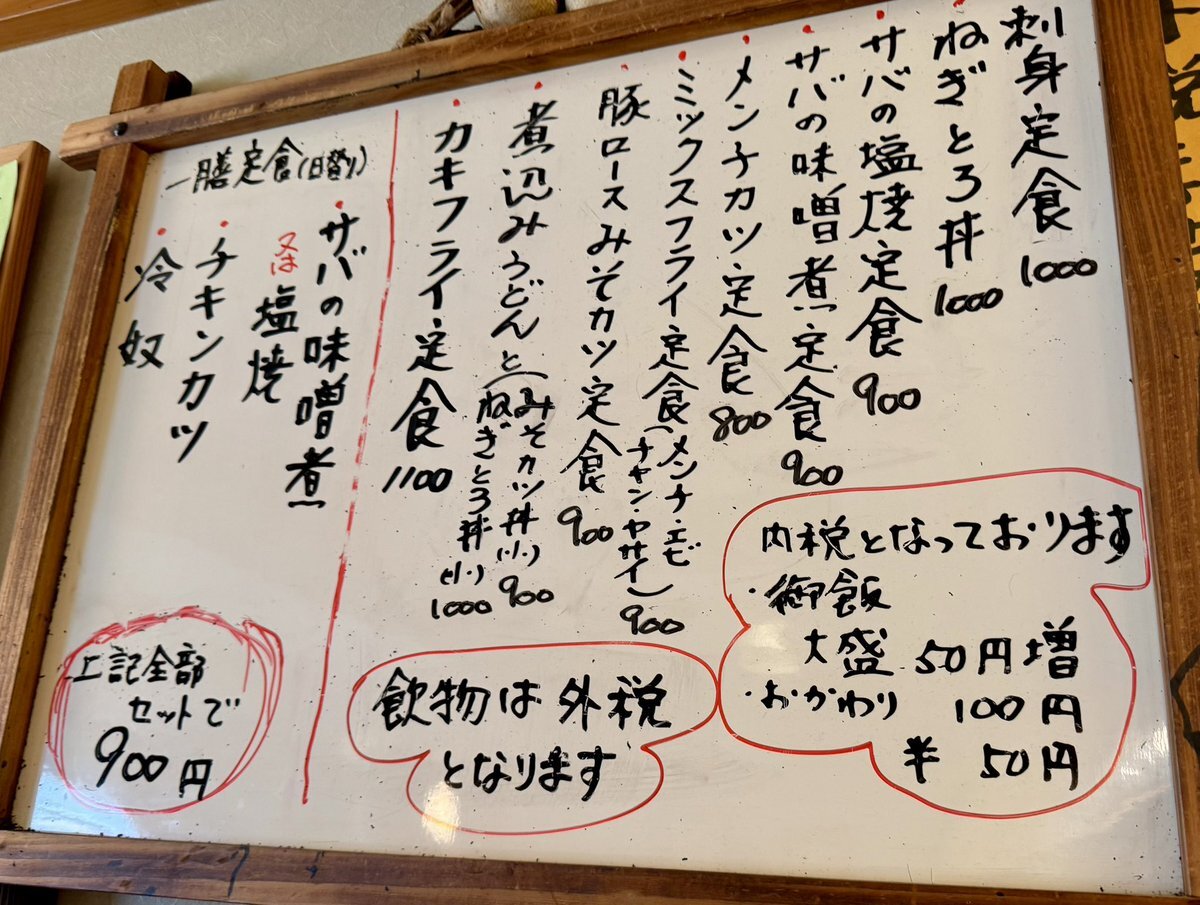 刺身定食 1000
ねぎとろ丼 1000
サバの塩焼定食 900
サバの味噌煮定食 900
メンチカツ定食 800
ミックスフライ定食(メンチ・エビ
チキン・ヤサイ) 900
豚ロースみそカツ定食 900
煮込みうどんと(みそカツ丼(小) 900
ねぎとろ丼(小) 1000
カキフライ定食 1100
内税となっております
・御飯
大盛 50円増
・おかわり 100円
半 50円
飲物は外税
となります
一膳定食(日替り)
・サバの味噌煮
又は塩焼
・チキンカツ
・冷奴
上記全部
セットで
900円